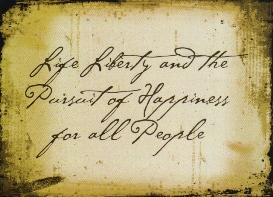 Life Liberty and the
Pursuit of Happiness
for all People